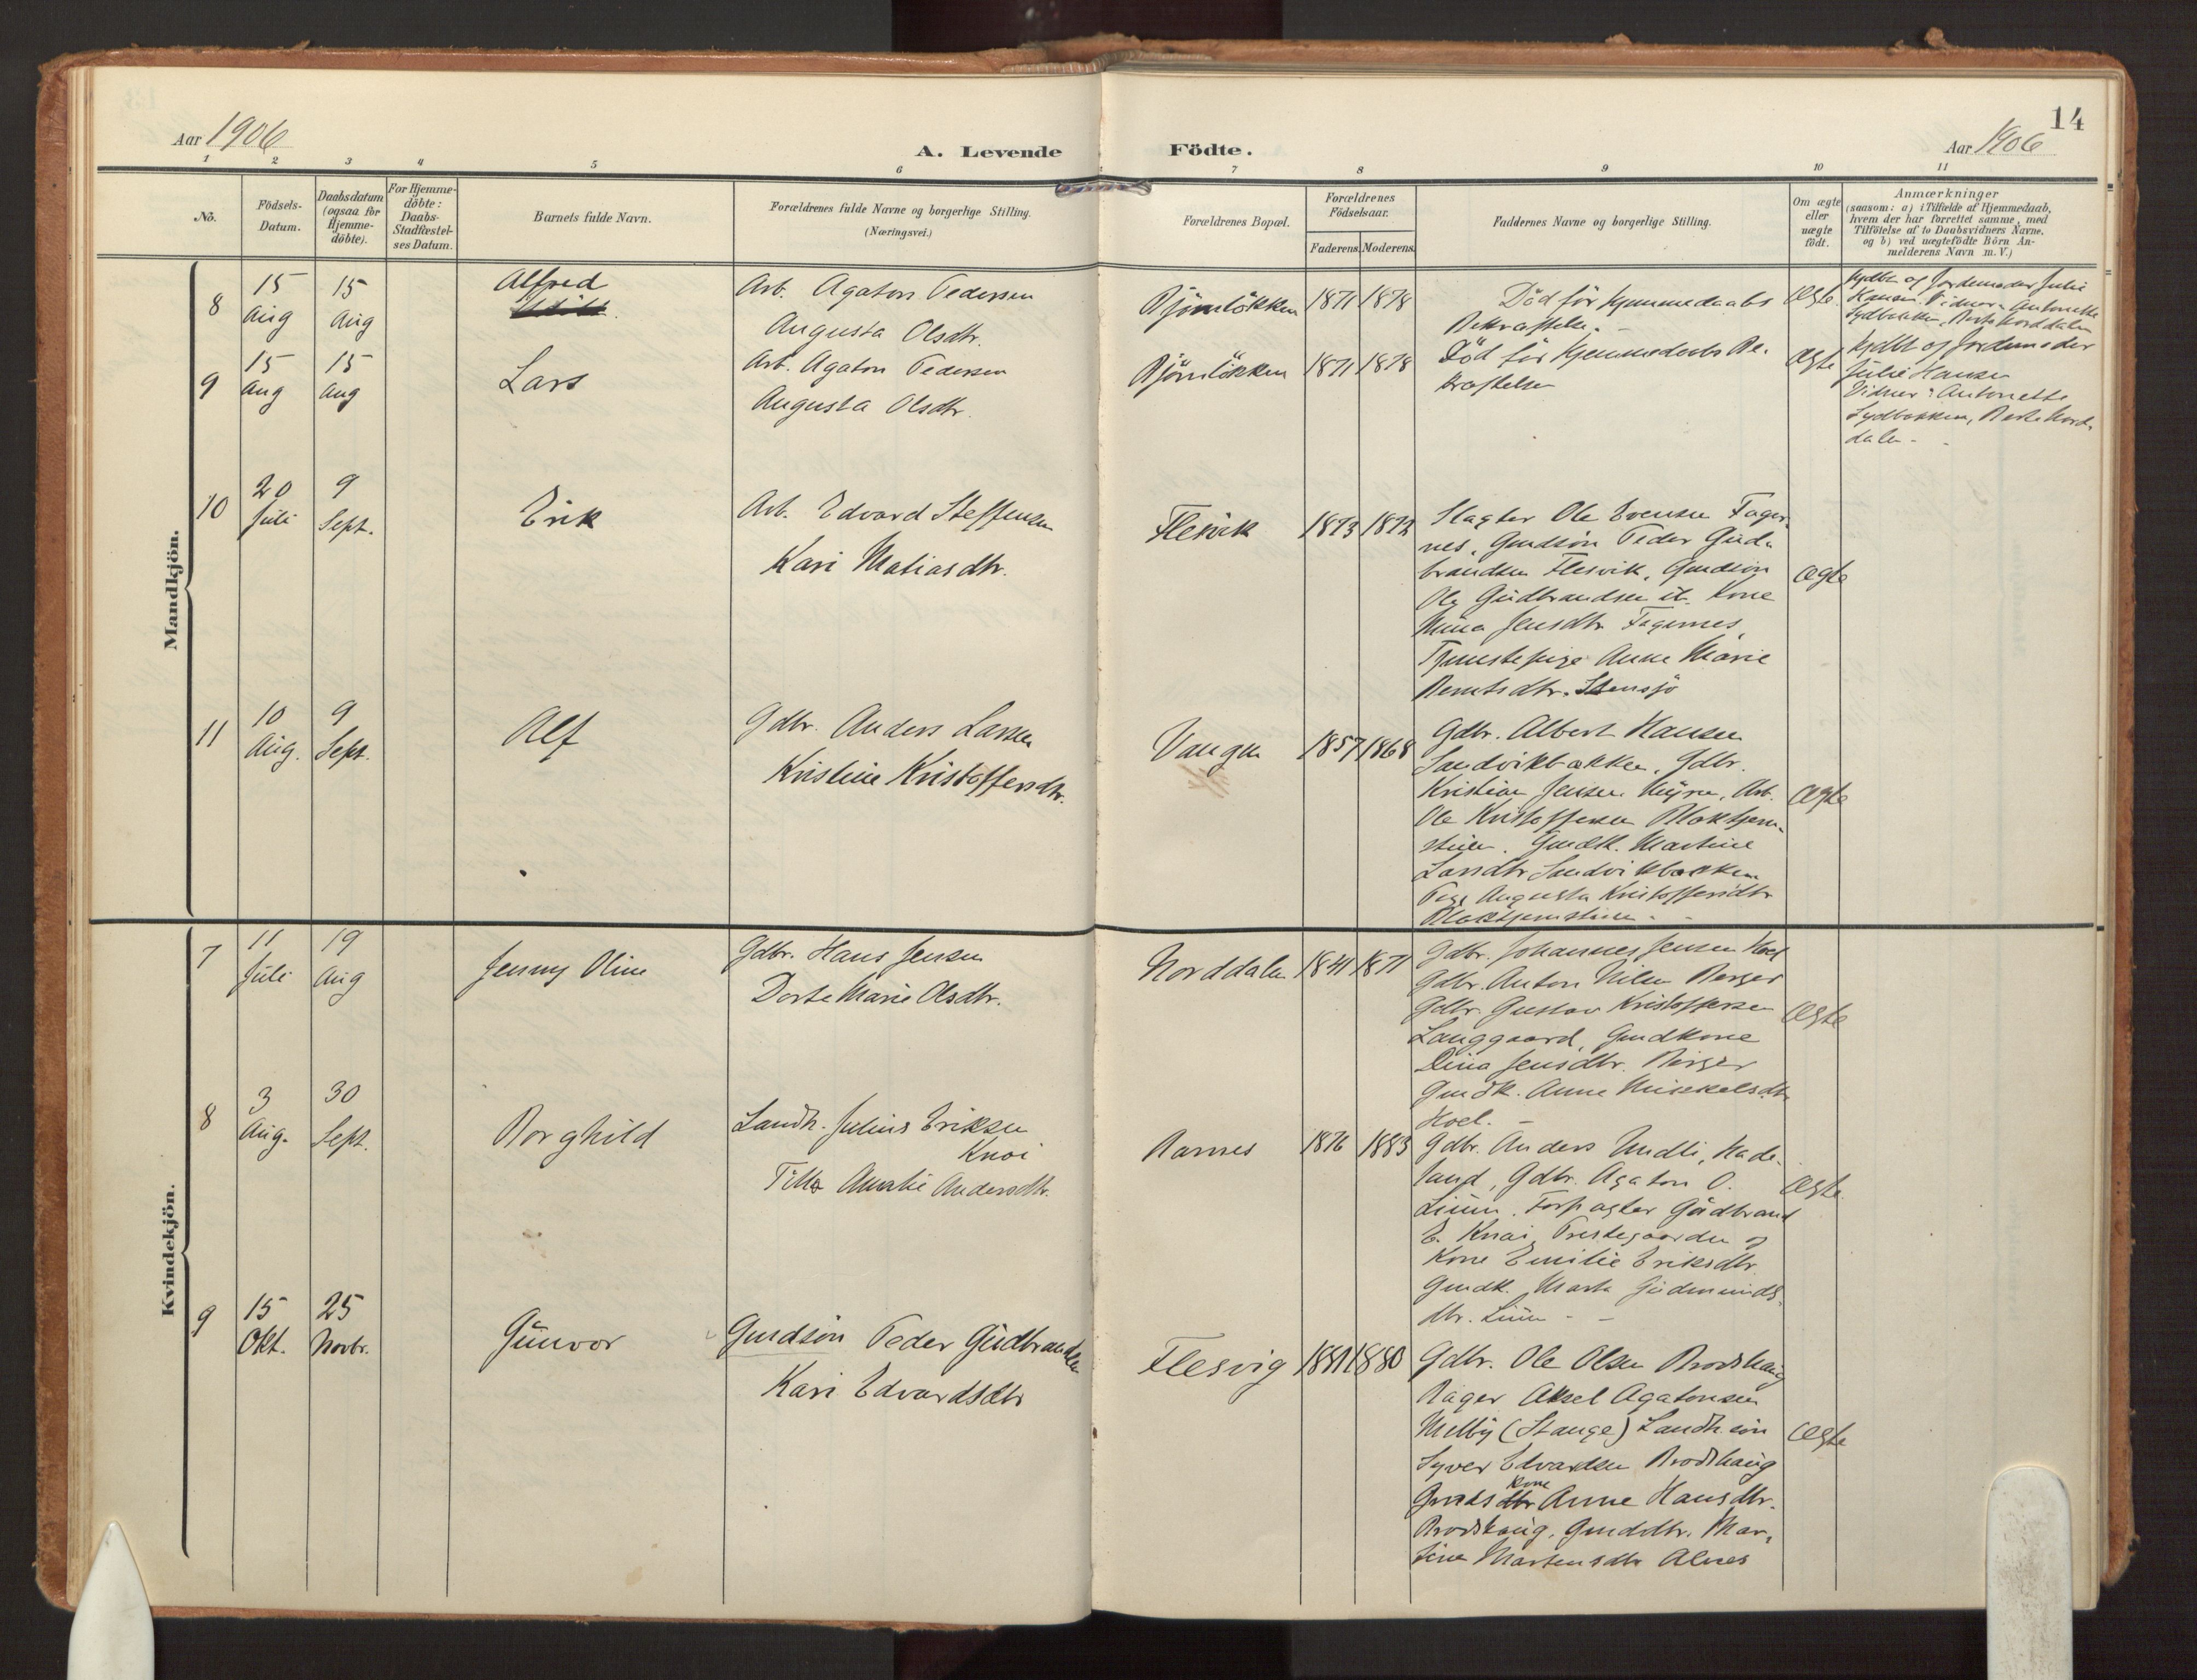 14
Aar 1906
A. Levende Födte.
Aar 1906
1 2 3 4 5 6 7 8 9 10 11
No.
Födsels-
Datum.
Daabsdatum
(ogsaa for
Hjemme-
döbte).
For Hjemme-
döbte:
Daabs-
Stadfæstel-
ses Datum.
Barnets fulde Navn.
Forældrenes fulde Navne og borgerlige Stilling.
(Næringsvei.)
Forældrenes Bopæl.
Forældrenes
Födselsaar.
Faderens. Moderens.
Faddernes Navne og borgerlige Stilling.
Om ægte
eller
uægte
födt.
Anmærkninger
(saasom: a) i Tilfælde af Hjemmedaab,
hvem der har forrettet samme, med
Tilföielse af to Daabsvidners Navne.
og b) ved uægtefödte Börn An-
melderens Navn m. V.)
Mandkjön.
8
15
Aug
15
Aug
Alfred
Arb. Agaton Pedersen
Augusta Olsdtr.
Björnlökken
1871 1878
Död för hjemmedaabs
Bekræftelse.
Ægte.
hjdbt af Jordemoder Julie
Hansen. Vidner: Antonette
Sydbakken, Berte Norddalen
9
15
Aug
15
Aug
Lars
Arb. Agaton Pedersen
Augusta Olsdtr.
Björnlökken
1871 1878
Död för hjemmedaabs Be-
kræftelse
Ægte
hjdbt af Jordemoder
Julie Hansen
Vidner: Antonette
Sydbakken, Berte Nord-
dalen
10
20
Juli
9
Sept.
Erik
Arb. Edvard Steffensen
Kari Matiasdtr.
Flesvik
1873 1872
Slagter Ole Evensen Fager-
nes, Gmdsön Peder Gud-
brandsen Flesvik, Gmdsön
Ole Gudbrandsen it. Kone
Mina Jensdtr Fagernes,
Tjenestepige Anne Marie
Berntsdtr. Stensjö
Ægte
11
10
Aug.
9
Sept.
Alf
Gdbr. Anders Larsen
Kristine Kristoffersdtr.
Vangen
1857 1868
Gdbr. Albert Hansen
Sandvikbakken, Gdbr.
Kristian Jensen Myra, Arb.
Ole Kristoffersen Blaktjern-
stuen. Gmdk. Martine
Larsdtr Sandvikbakken
Pige Augusta Kristoffersdtr
Blaktjernstuen
Ægte
Kvindekjön.
7
11
Juli
19
Aug
Jenny Oline
Gdbr. Hans Jensen
Dorte Marie Olsdtr.
Norddalen
1841 1871
Gdbr. Johannes Jensen Hoel
Gdbr. Anton Nilsen Berger
Gdbr. Gustav Kristoffersen
Langgaard, Gmdkone
Dina Jensdtr. Berger
Gmdk. Anne Mikkelsdtr
Hoel.
Ægte
8
3
Aug.
30
Sept.
Borghild
Landh. Julius Eriksen
Knai
Tilla Amalie Andersdtr.
Barnes
1876 1883
Gdbr. Anders Undli, Hade-
land, Gdbr. Agaton O.
Linna. Forpagter Gudbrand
E. Knai, Prestegaarden og
Kone Emilie Eriksdtr
Gmdk. Marta Gudmunds-
dtr.
Ægte
9
15
Okt.
25
Novbr.
Gunvor
Gmdsön Peder Gudbrandsen
Kari Edvardsdtr
Flesvig
1881 1880
Gdbr. Ole Olsen Brodshaug
Bager Aksel Agatonsen
Melby (Stange) Landh.sön
Syver Edvardsen Brodshaug
Gmds kone Anne Hansdtr.
Brodshaug, Gmddtr. Mar-
tine Martensdtr Alnes
Ægte